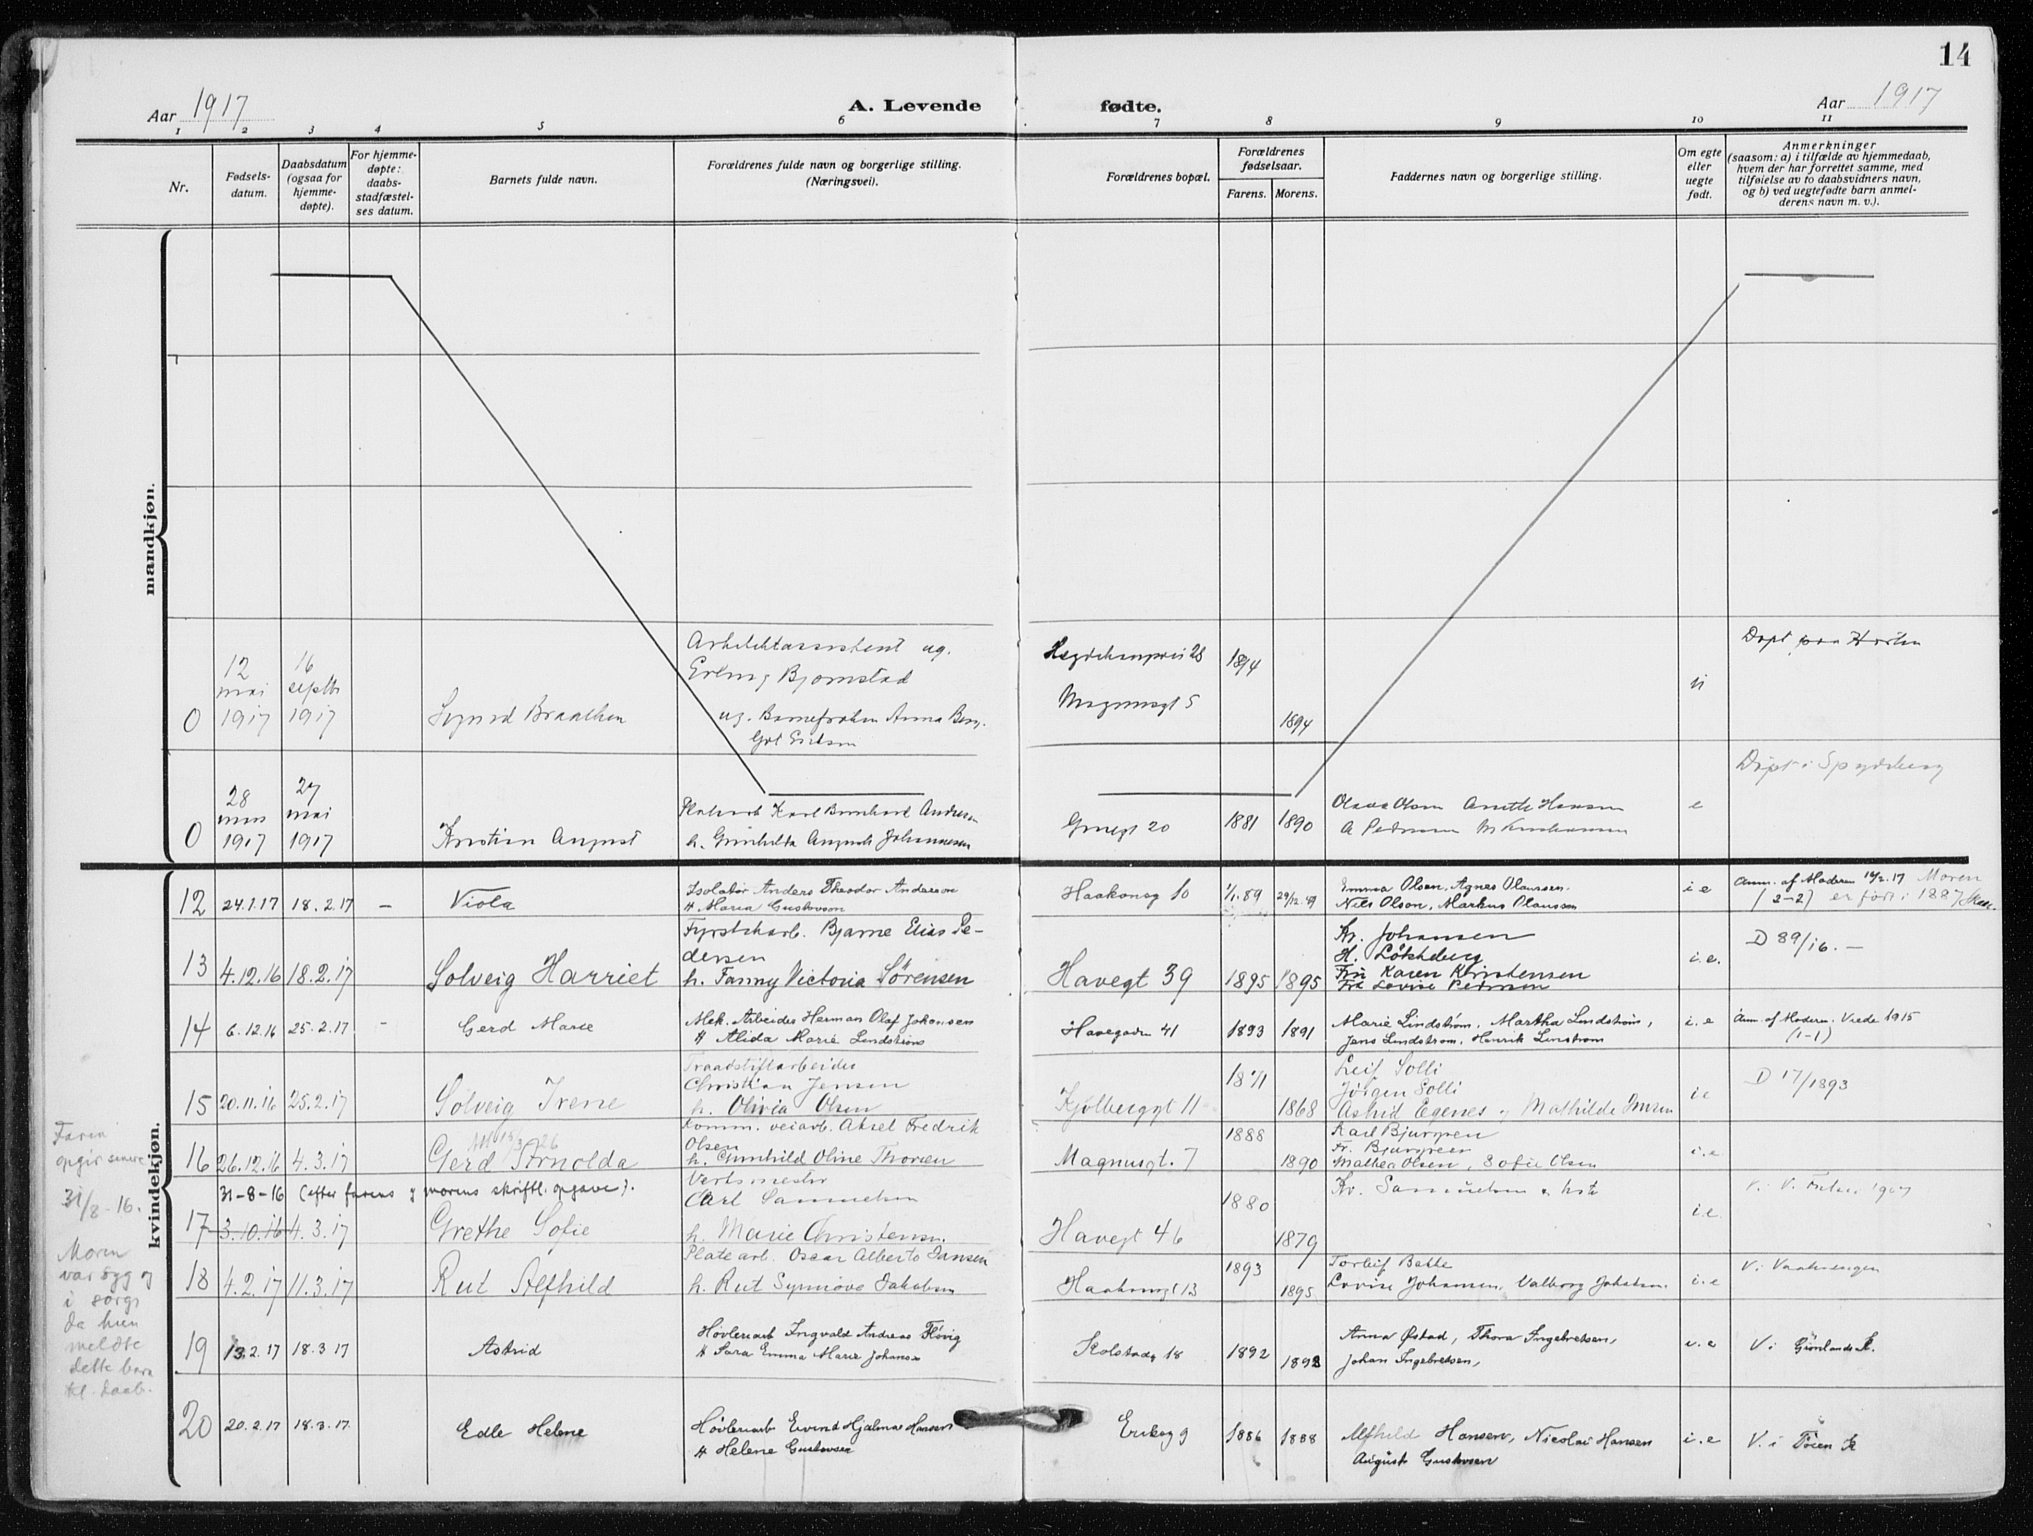 14
Aar 1917
A. Levende fødte.
Aar 1917
1 2 3 4 5 6 7 8 9 10 11
Nr.
Fødsels-
datum.
Daabsdatum
(ogsaa for
hjemme-
døpte).
For hjemme-
døpte:
daabs-
stadfæstel-
ses datum.
Barnets fulde navn.
Forældrenes fulde navn og borgerlige stilling.
(Næringsvei).
Forældrenes bopæl.
Forældrenes
fødselsaar.
Farens. Morens.
Faddernes navn og borgerlige stilling.
Om egte
eller
uegte
født.
Anmerkninger
(saasom: a) i tilfælde av hjemmedaab,
hvem der har forrettet samme, med
tilføielse av to daabsvidners navn,
og b) ved uegtefødte barn anmel-
derens navn m. v.).
mandkjøn.
0
12
mai
1917
16
septbr
1917
Braathen
ug.
Erling Bjørnstad
ug. Anna
28
1894
Magnusgt 5
1894
Døpt paa
0
28
1917
27
mai
1917
Kristian August
Karl Bernhard Andersen
h. August Johannesen
20
1881 1890
Olsen Anette Hansen
A Pedersen
e
Døpt i Spydeberg
kvindekjøn.
12 24.1.17 18.2.17 –
Viola
Isolatør Anders Theodor Andersson
H Maria Gustavson
Haakonsg 10
1/1.89
Emma Olsen, Agnes Olaussen.
Nils Olson, Markus Olaussen
i e
Anm. af Moderen Moren
(2-2) er født i 1887
13 4.12.16 18.2.17
Solveig Harriet
Fyrstikarb. Bjarne Elias Pe-
dersen
h. Fanny Victoria Sørensen
Havegt 39
1895 1895
Kr. Johansen
H. Løkkeberg
Fru Karen Kristensen
Fru Lovise Pedersen
i.e.
D 89/16. –
14 6.12.16 25.2.17 –
Gerd Marie
Mek. Arbeider Herman Olaf Johansen
H Alida Marie Lindstrøm
Havegaden 41
1893 1891
Marie Lindstrøm, Martha Lindstrøm,
Jens Lindstrøm, Henrik Linstrøm
i.e
Anm. af Moderen. Viede 1915
(1-1)
15 20.11.16 25.2.17
Solveig Irene
Traadstiftarbeider
Christian Jensen
h. Olivia Olsen
Kjølberggt 11
1871
1868
Leif Solli
Jørgen Solli
Astrid Egenes, Mathilde
i e
D 17/1893
16 26.12.16 4.3.17
Gerd Arnolda
Komm. veiarb. Aksel Fredrik
Olsen
h. Gunhild Oline Thoresen
Magnusgt. 7
1888
1890
Karl Bjurgren
Fr. Bjurgreen
Mathea Olsen, Sofie Olsen
i.e
31-8-16 (efter farens og morens skriftl. opgave).
17 3.10.16 4.3.17
Grethe Sofie
Verksmester
Carl Samuelsen
h. Marie Christensen.
Havegt 46
1880
1879
Kr. Samuelsen
i.e
1907
18 4.2.17 11.3.17
Rut Alfhild
Platearb. Oscar Alberto Jansen
h. Rut Synnøve Jakobsen
Haakonsgt 13
1893
1895
Torleif Bakke
Lovise Johansen, Valborg Johansen.
i.e
V. i Vaalerengen
19 13.2.17 18.3 17
Astrid
Høvleriarb Ingvald Andreas Flovig
H Sara Emma Marie Johansen
Kolstadg 18
1892 1892
Anna Østad, Thora Ingebretsen,
Johan Ingebretsen,
i.e
V i Grønlands K.
20 20.2.17 18.3.17
Edle Helene
Høvleriarb Eivind Hjalmar Hansen
H Helene Gustavsen
Eriksg 9
1886 1888
Alfhild Hansen, Nicolai Hansen
August Gustavsen
i.e
V. i Tøien K
Faren
opgir senere
31/8-16.
Moren
var syg og
i sorg,
da hun
meldte
dette barn
til daab.